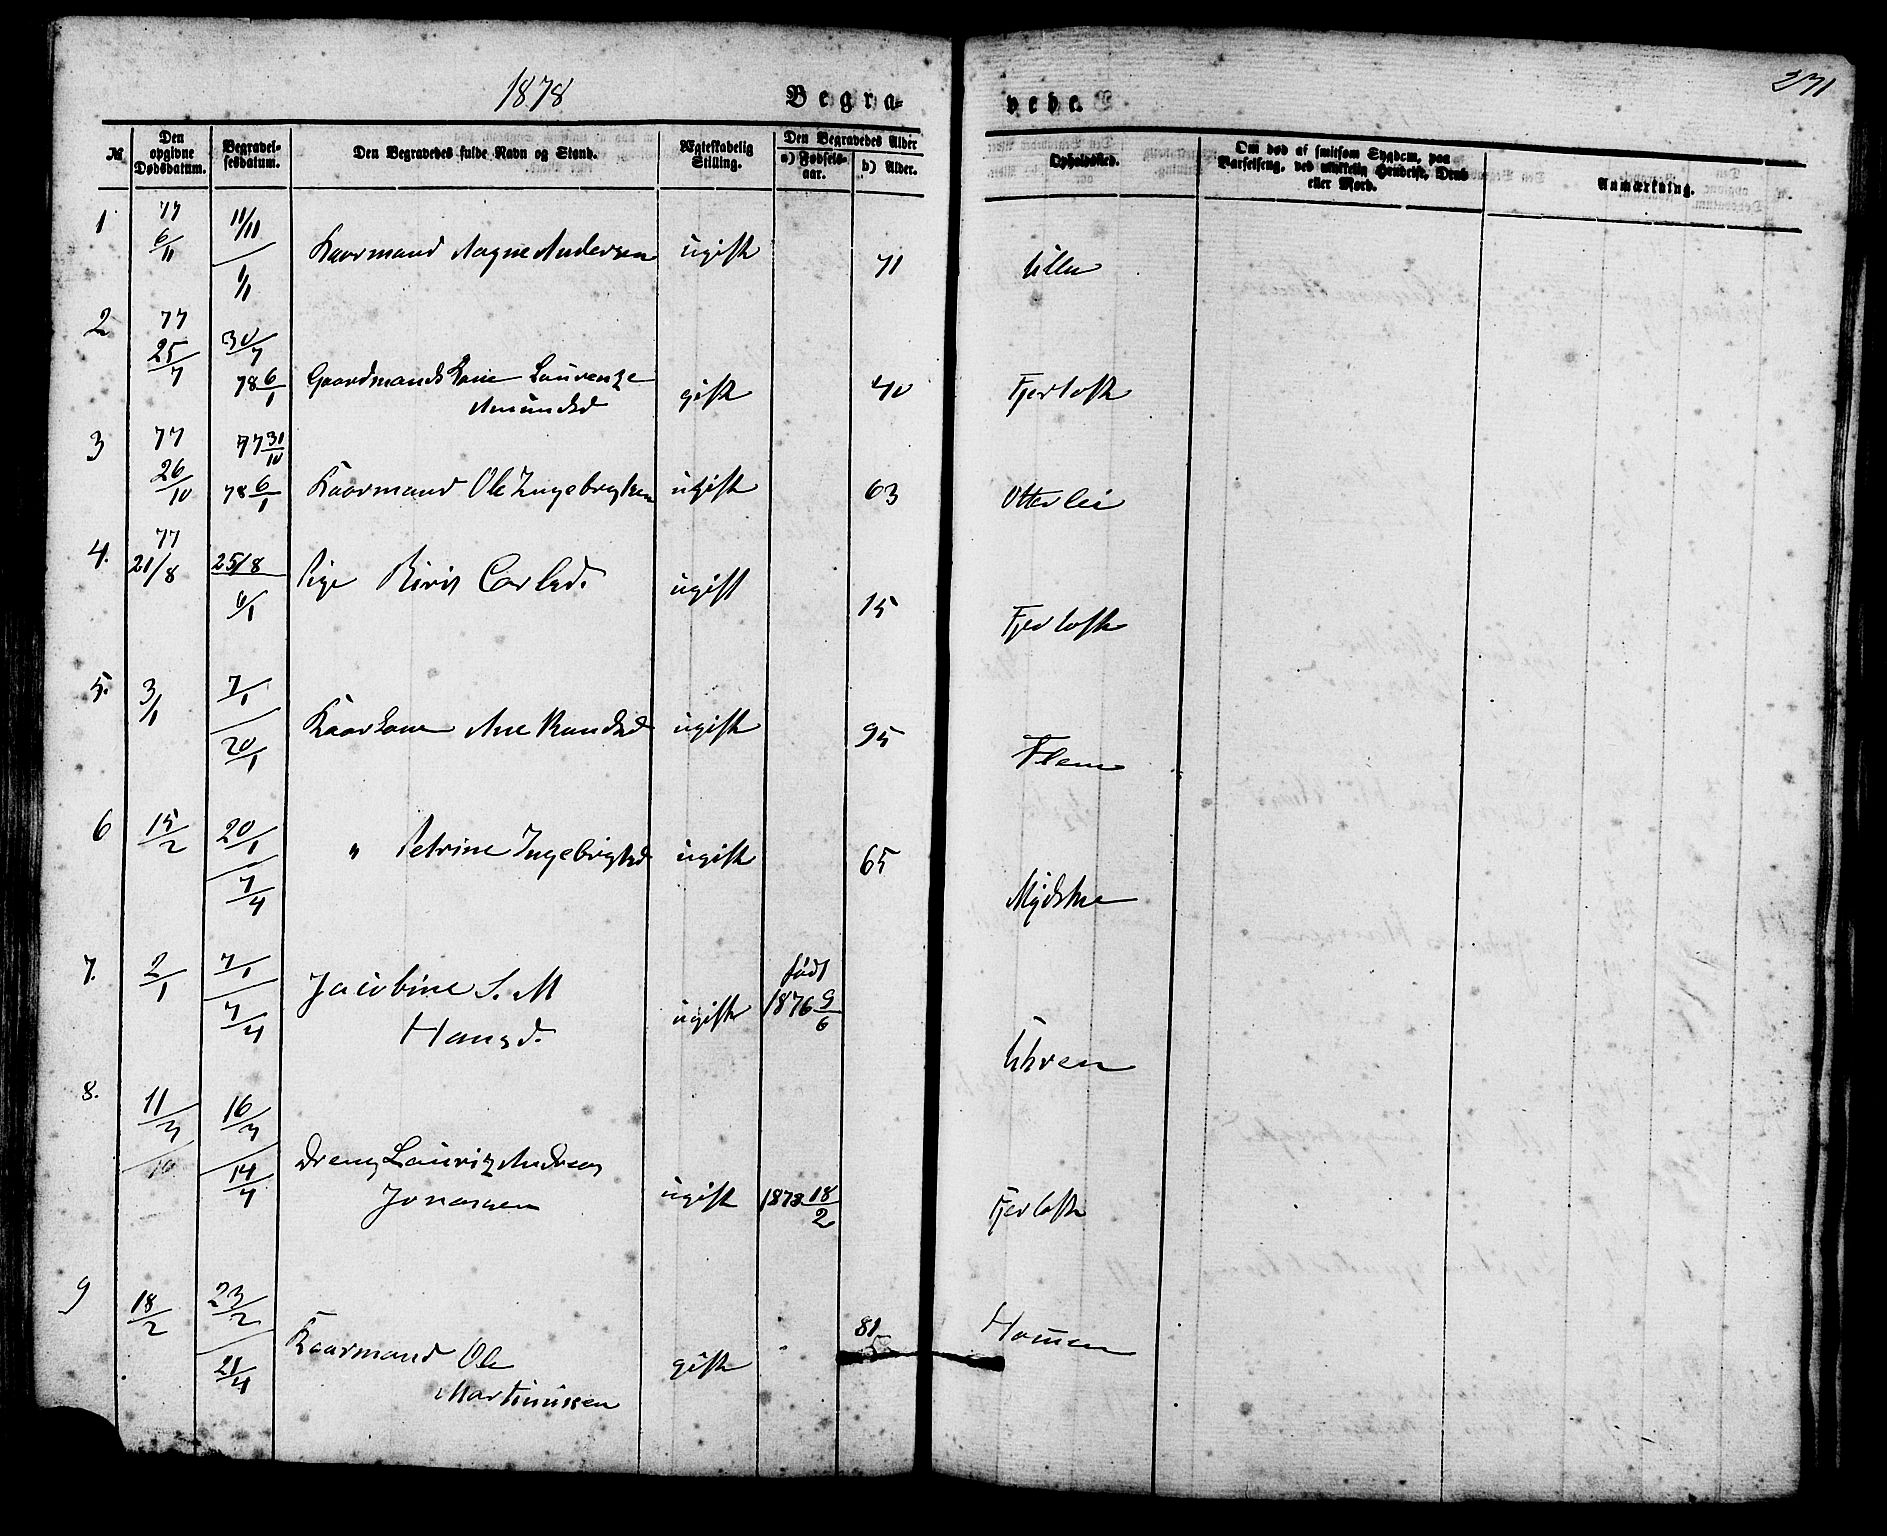 1878
Begra= vede.
271
№
Den opgivne Dødsdatum.
Begravel-sesdatum.
Den Begravedes fulde Navn og Stand.
Ægteskabelig Stilling.
Den Begravedes Alder
a) Fødsels-aar.
b) Alder.
Opholdssted.
Om død af smitsom Sygdom, paa Barselseng, ved ulykkelig Hendelse, Drab eller Mord.
Anmærkning.
1 77 6/11 11/11 1/1 Kaarmand Aagne Andersen ugift 71 Ulla
2 77 25/7 30/7 78 6/1 Gaardmands Kone Laurentze
Amundsd gift 40 Fjertoft
3 77 26/10 77 31/10 78 6/1 Kaarmand Ole Ingebrigtsen ugift 63 Otterlei
4. 77 21/8 25/8 6/1 Pige Carlsd. ugift 15 Fjertoft
5. 3/1 7/1 20/1 Kaarkone Ane Knudsd ugift 95 Flem
6 15/2 20/1 7/4 " Petrine Ingebrigtsd ugift 65
7. 2/1 7/1 7/4 Jacobine S. M
Hansd. ugift født 1876 9/6 Uhren
8. 11/4 16/4 14/4 Dreng Lauritz Andreas
Jonassen ugift 1878 18/2 Fjertoft
9 18/2 23/2 21/4 Kaarmand Ole
Martinusen gift 81 Hamen